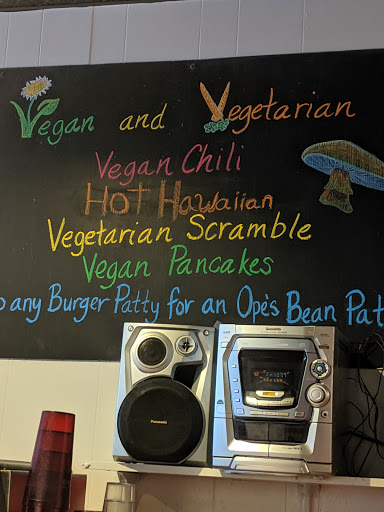 Vegan and Vegetarian
Vegan Chili
Hot Hawaiian
Vegetarian Scramble
Vegan Pancakes
any Burger Patty for an Ope's Bean
Panasonic
Panasonic